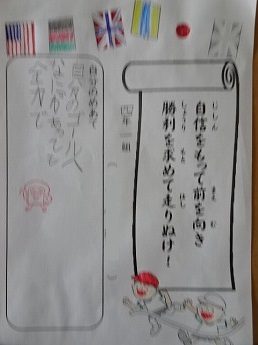 自信をもって前を向き
勝利を求めて走りぬけ!
四年一組
自分のめあて
自分のゴールへ
なにがあっても
全力で